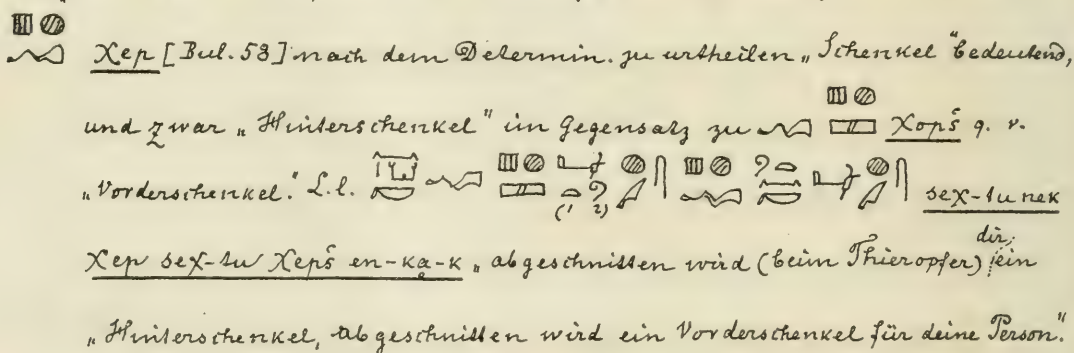 χep [Bul. 58] nach dem Determin. zu urtheilen „Schenkel“ bedeutend,
und zwar „Hinterschenkel“ im Gegensatz zu χopš q. v.
„Vorderschenkel.“ L. l. (1 2) seχ-tu nek
χep seχ-tu χepš en-ka-k „abgeschnitten wird (beim Thieropfer) dir ein
„Hinterschenkel, abgeschnitten wird ein Vorderschenkel für deine Person.“